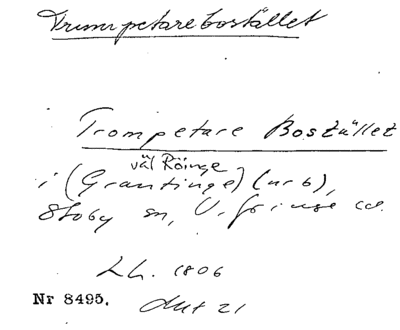 Trumpetarebostället
Trompetare Bostället
väl Röinge
i (Grantinge) (nr 6),
Stoby sn, V. Göinge
Lh. 1806
Nr 8495.